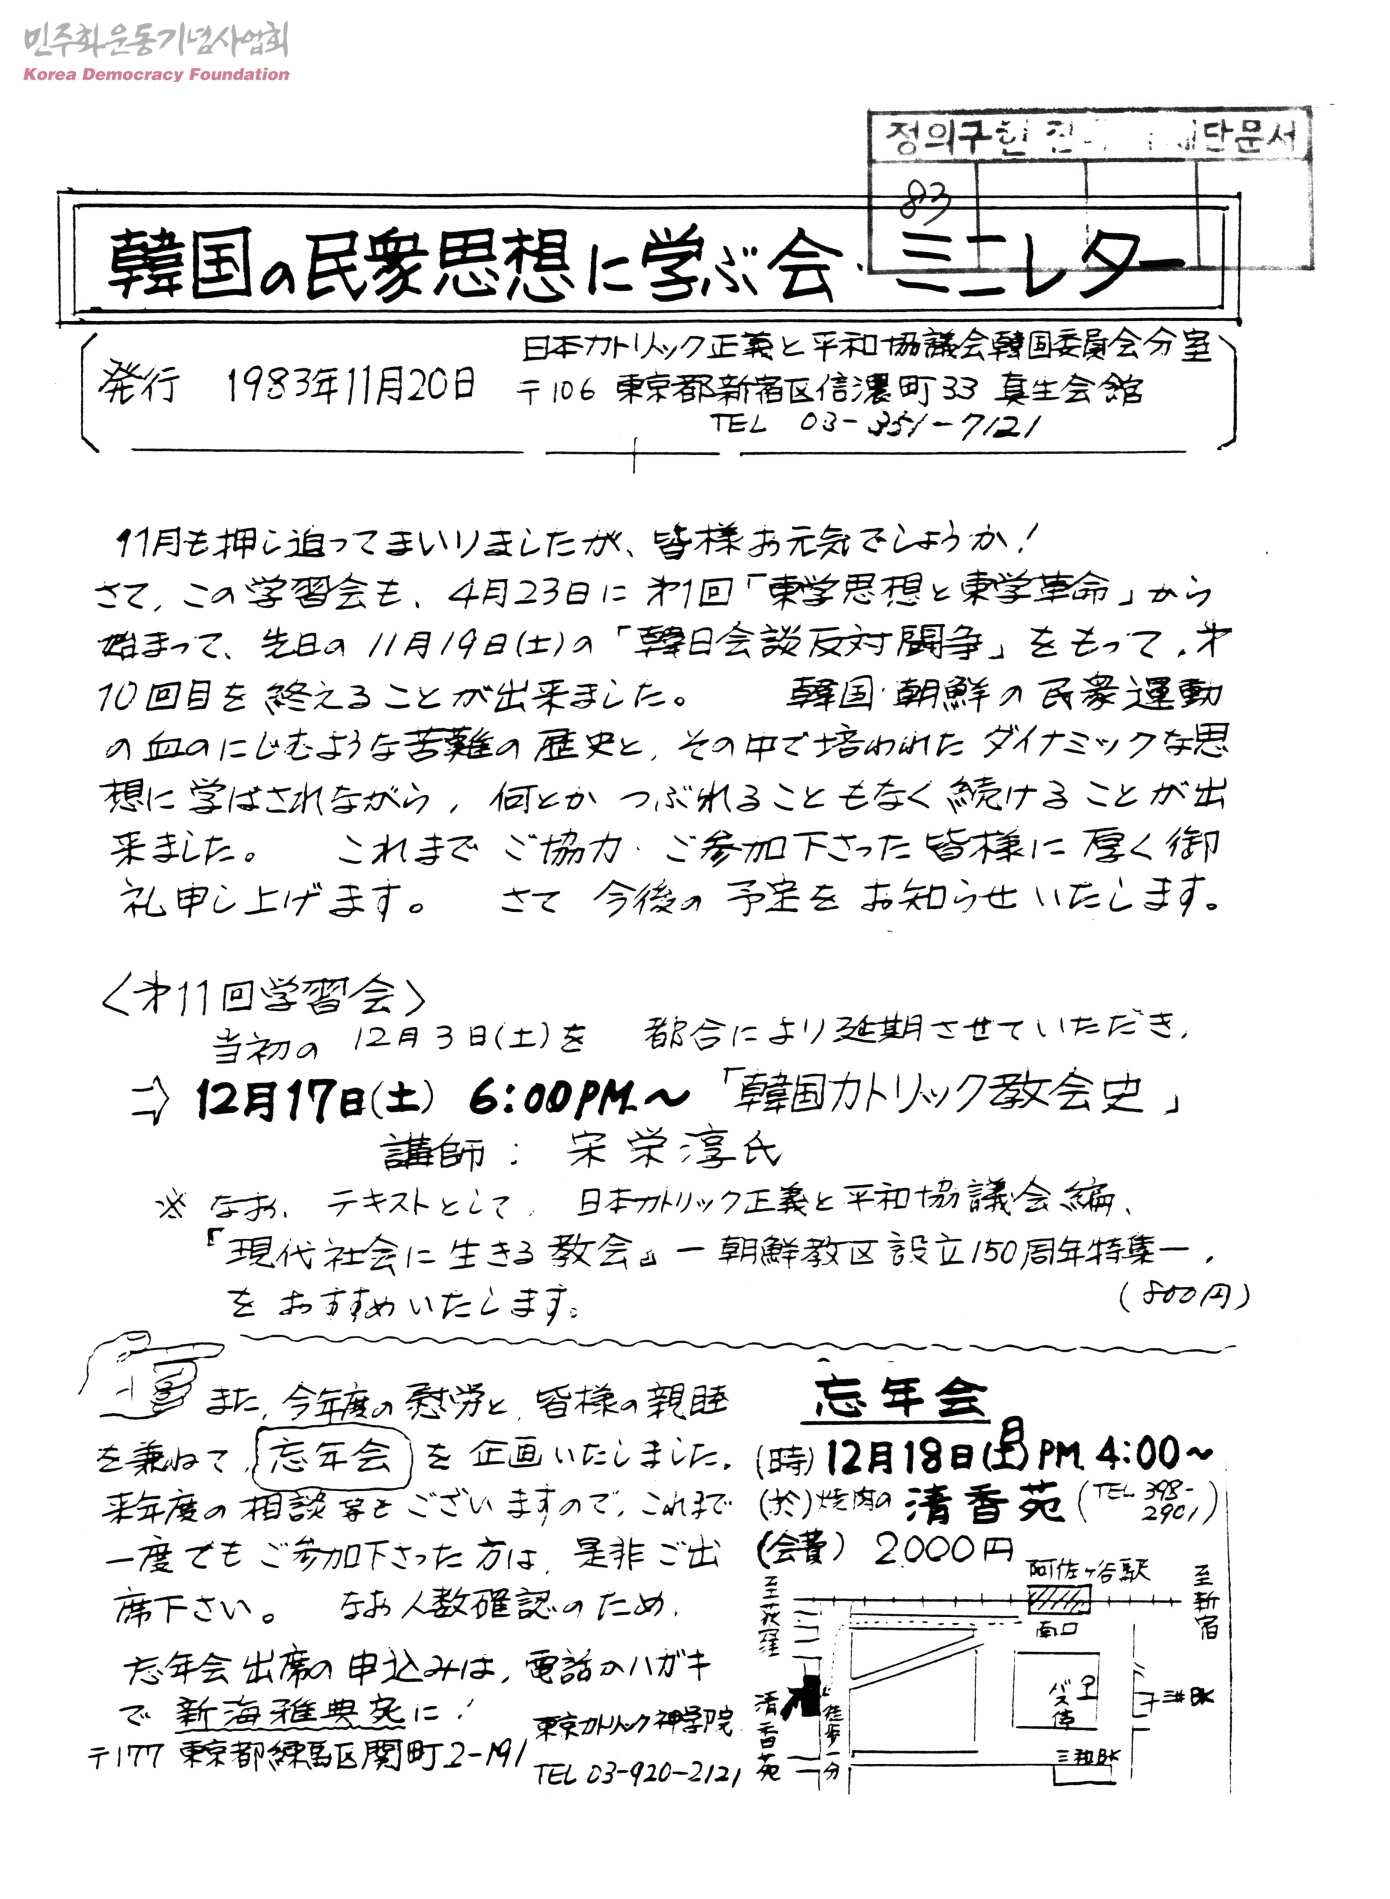 민주화운동기념사업회
Korea Democracy Foundation
정의구현 단문서
83
韓国の民衆思想に学ぶ会 ミニレター
発行 1983年11月20日
日本カトリック正義と平和協議会韓国委員会分室
〒106 東京都新宿区信濃町33 真生会館
TEL 03-351-7121
11月も押し迫ってまいりましたが、皆様お元気でしょうか!
さて、この学習会も、4月23日に才1回「東学思想と東学革命」から
始まって、先日の11月19日(土)の「韓日会談反対闘争」をもって、才
10回目を終えることが出来ました。 韓国・朝鮮の民衆運動
の血のにじむような苦難の歴史と、その中で培われたダイナミックな思
想に学ばされながら、何とかつぶれることもなく続けることが出
来ました。 これまでご協力・ご参加下さった皆様に厚く御
礼申し上げます。 さて今後の予定をお知らせいたします。
〈才11回学習会〉
当初の12月3日(土)を 都合により延期させていただき、
⇒ 12月17日(土) 6:00PM.〜「韓国カトリック教会史」
講師: 宋栄淳氏
※ なお、テキストとして、日本カトリック正義と平和協議会編、
『現代社会に生きる教会』ー朝鮮教区設立150周年特集ー、
をおすすめいたします。 (800円)
また、今年度の慰労と、皆様の親睦
を兼ねて、忘年会を企画いたしました。
来年度の相談等もございますので、これまで
一度でもご参加下さった方は、是非ご出
席下さい。 なお人数確認のため、
忘年会出席の申込みは、電話かハガキ
で新海雅典宛に!
〒177 東京都練馬区関町2-191
東京カトリック神学院
TEL 03-920-2121
忘年会
(時) 12月18日(土)日 PM 4:00〜
(於) 焼肉の 清香苑 (TEL 398-2901)
(会費) 2000円
阿佐ヶ谷駅
至荻窪
至新宿
南口
バス停
清香苑
徒歩一分
三井BK
三和BK